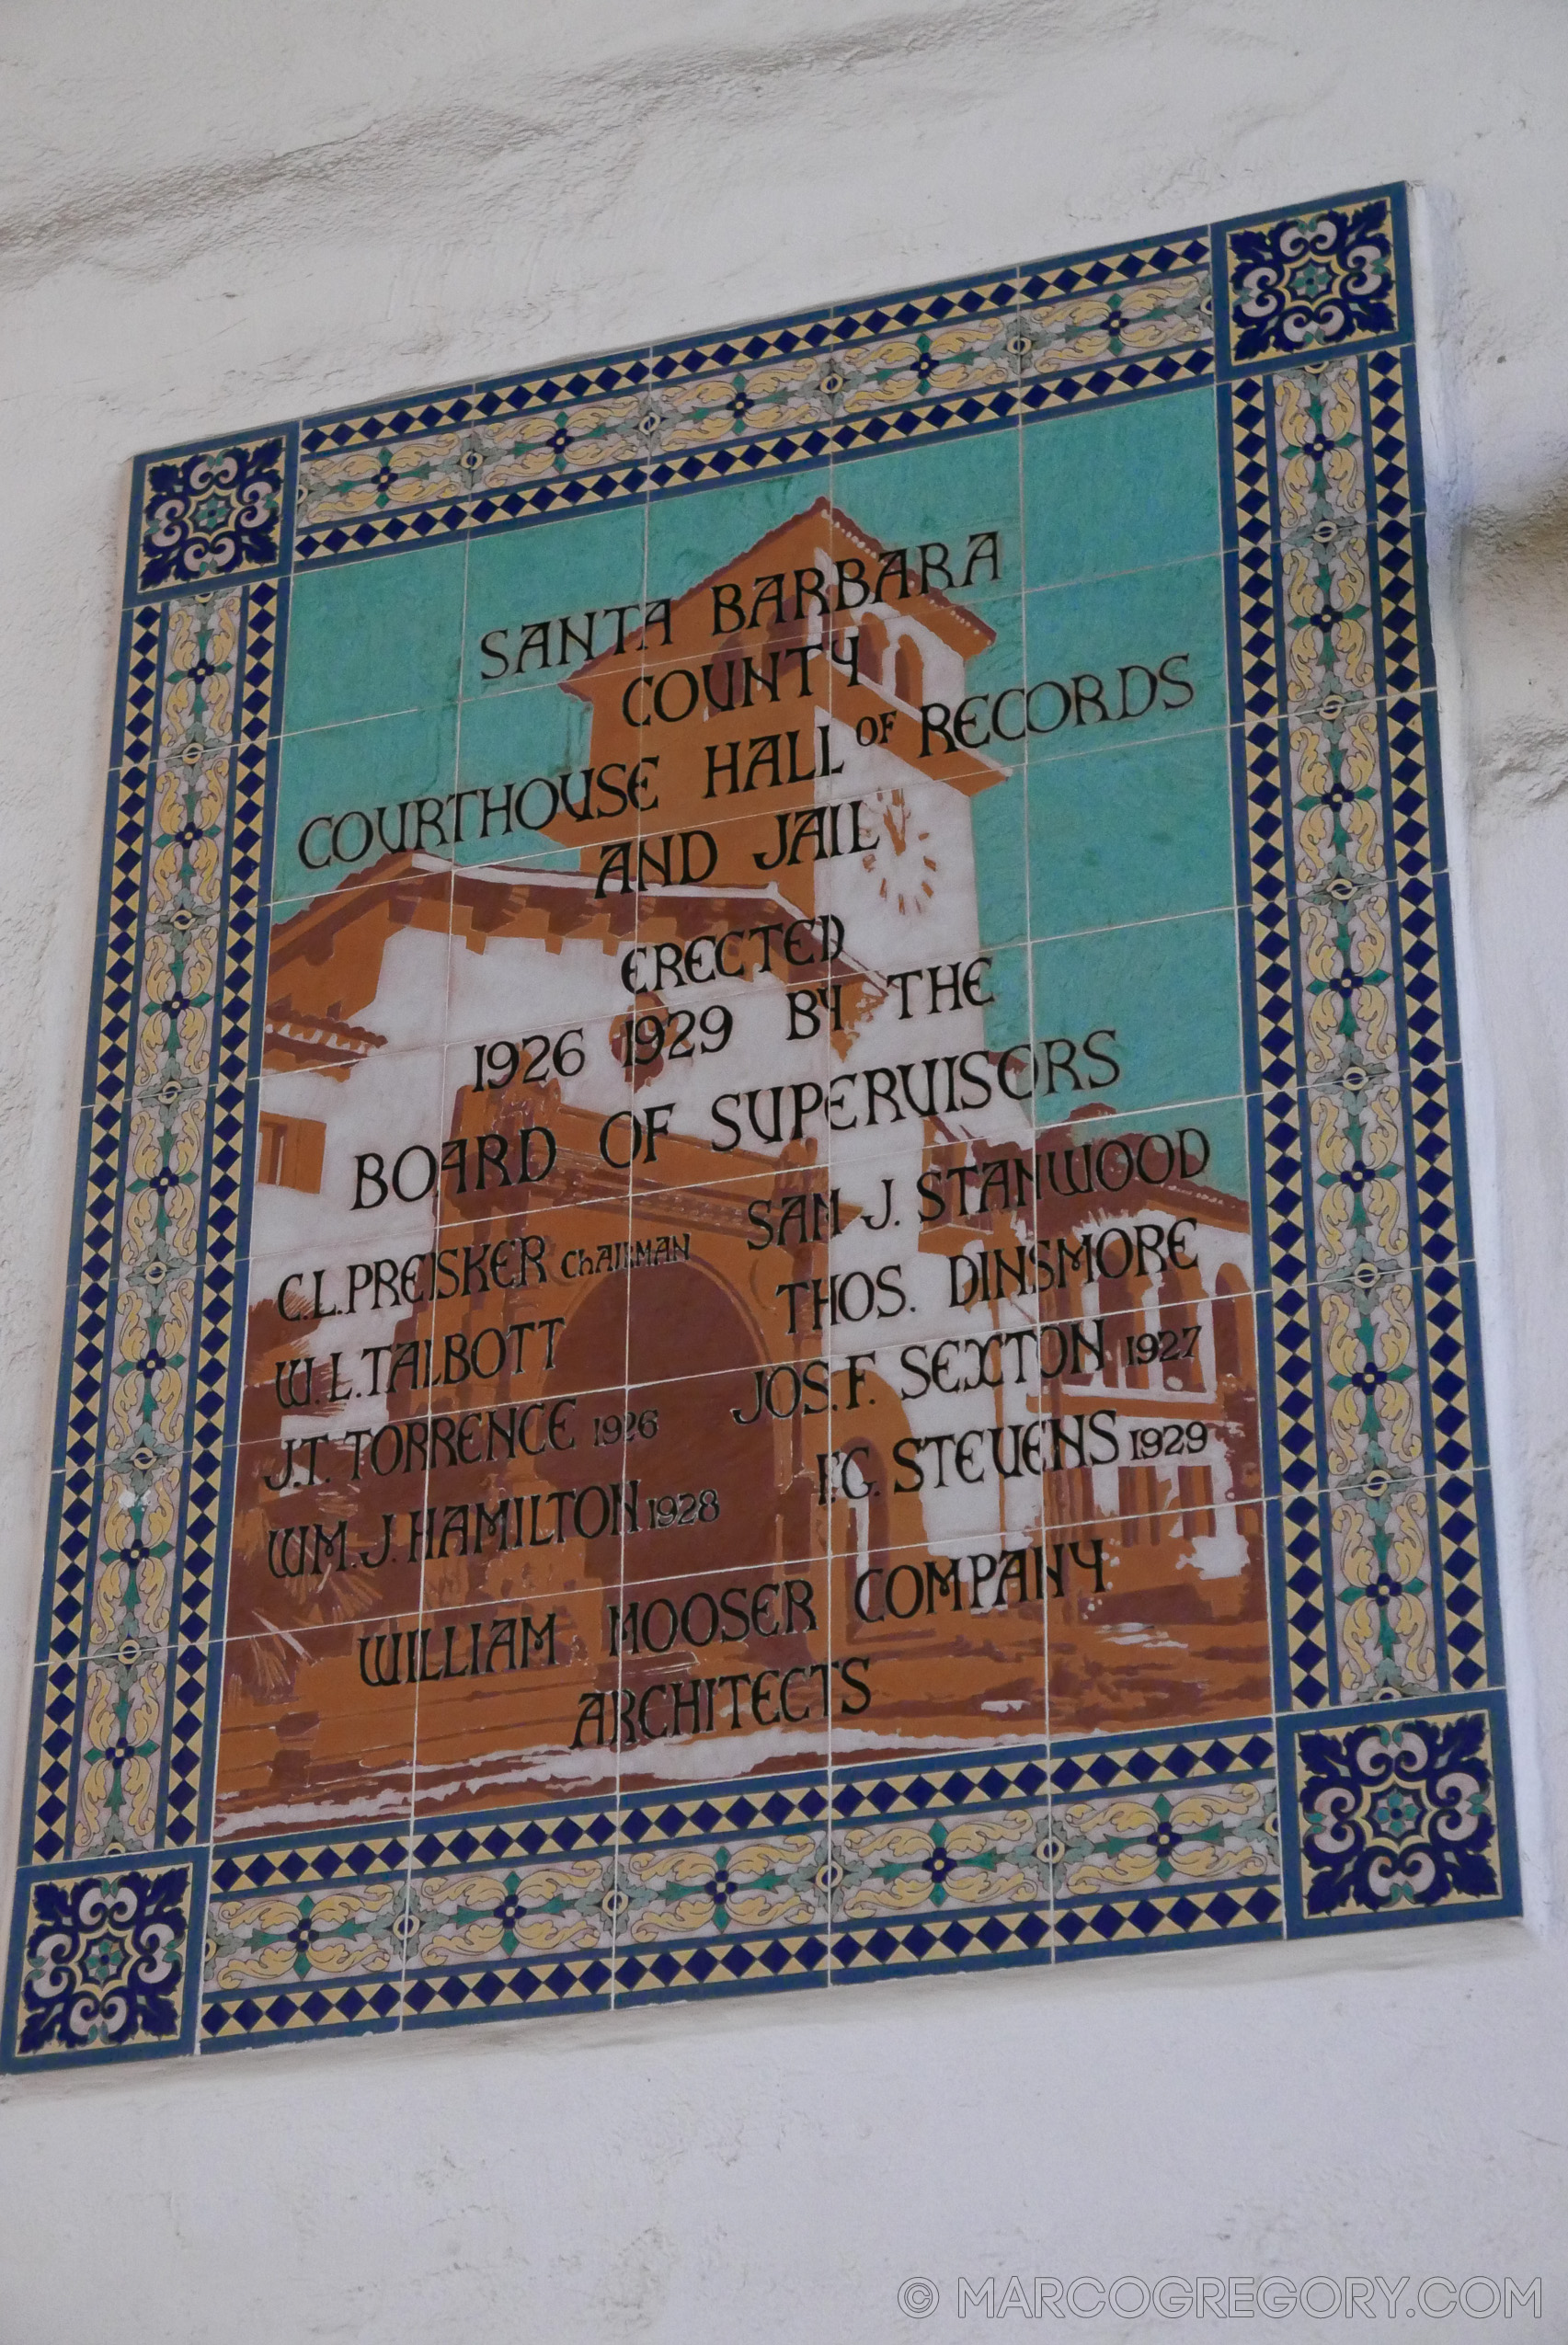 SANTA BARBARA
COUNTY
COURTHOUSE HALL OF RECORDS
AND JAIL
ERECTED
1926 1929 BY THE
BOARD OF SUPERVISORS
C.L. PREISKER ChAIRMAN
W.L. TALBOTT
J.T. TORRENCE 1926
WM. J. HAMILTON 1928
SAM J. STANWOOD
THOS. DINSMORE
JOS. F. SEXTON 1927
F.G. STEVENS 1929
WILLIAM MOOSER COMPANY
ARCHITECTS
© MARCOGREGORY.COM